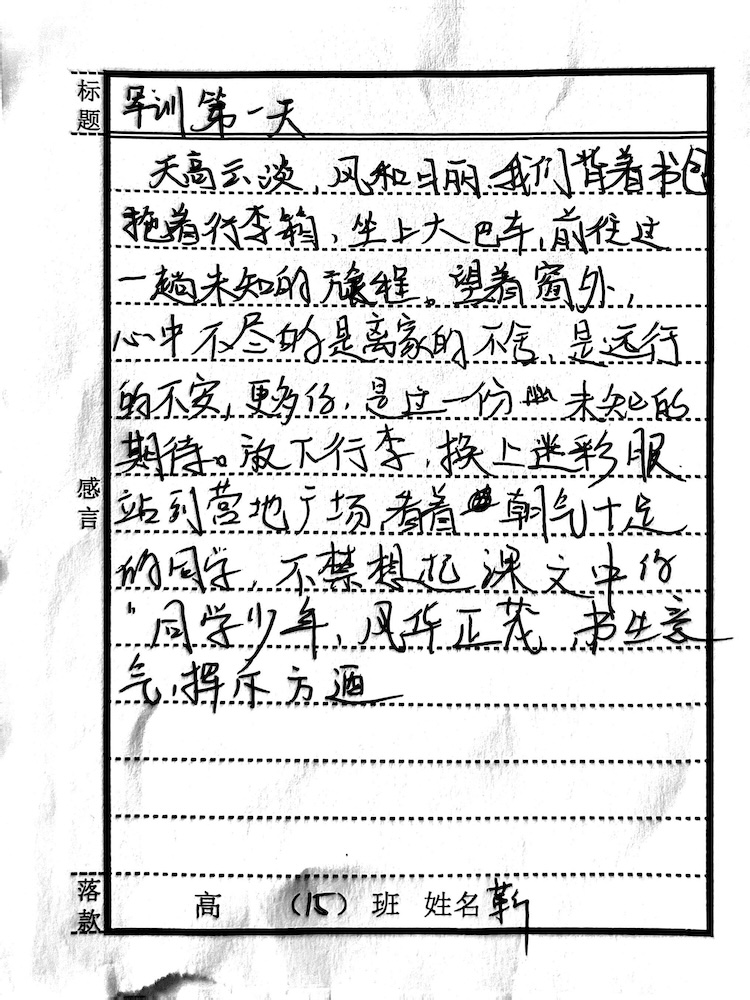 标题
军训第一天
天高云淡,风和日丽.我们背着书包
拖着行李箱,坐上大巴车,前往这
一趟未知的旅程。望着窗外,
心中不尽的是离家的不舍,是远行
的不安,更多的,是这一份未知的
期待。放下行李,换上迷彩服
站到营地广场,看着朝气十足
的同学,不禁想起课文中的
“同学少年,风华正茂,书生意
气,挥斥方遒
感言
落款
高 (15) 班 姓名 靳